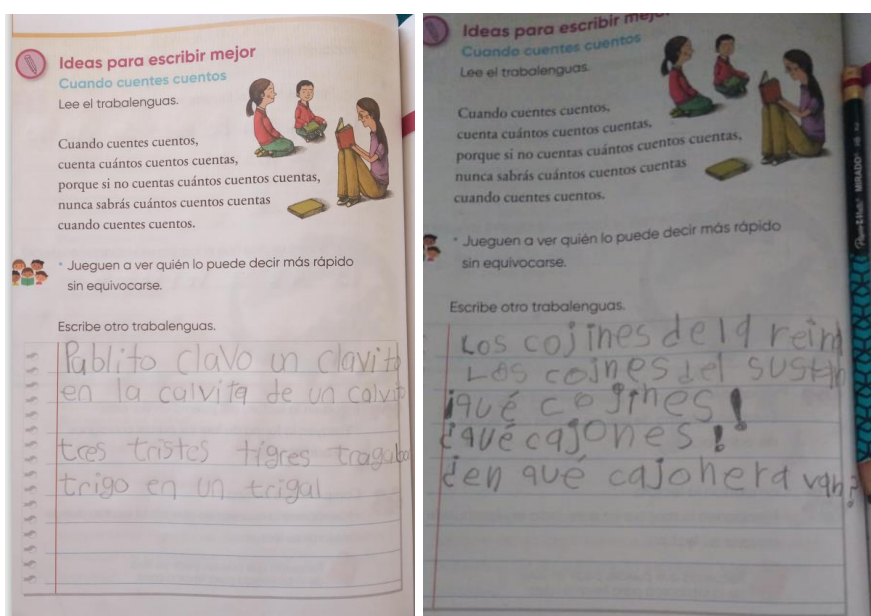 Ideas para escribir mejor
Cuando cuentes cuentos
Lee el trabalenguas.
Cuando cuentes cuentos,
cuenta cuántos cuentos cuentas,
porque si no cuentas cuántos cuentos cuentas,
nunca sabrás cuántos cuentos cuentas
cuando cuentes cuentos.
Jueguen a ver quién lo puede decir más rápido
sin equivocarse.
Escribe otro trabalenguas.
Pablito clavo un clavito
en la calvita de un calvito
tres tristes tigres tragaba
trigo en un trigal
Ideas para escribir mejor
Cuando cuentes cuentos
Lee el trabalenguas.
Cuando cuentes cuentos,
cuenta cuántos cuentos cuentas,
porque si no cuentas cuántos cuentos cuentas,
nunca sabrás cuántos cuentos cuentas
cuando cuentes cuentos.
Jueguen a ver quién lo puede decir más rápido
sin equivocarse.
Escribe otro trabalenguas.
Los cojines de la reina
Los cojnes del
¡qué cojines!
¿qué cajones!
¿en qué cajonera van?
MIRADO